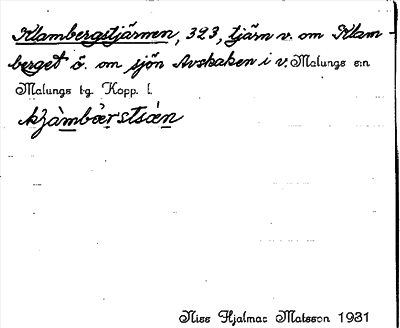 Klambergstjärnen, 323, tjärn v. om Klam-
berget ö. om sjön Avskaken i v. Malungs sn
Malungs tg. Kopp. l.
kḷàm̲bæ̀r̲stsæ̀n̲
Niss Hjalmar Matsson 1931